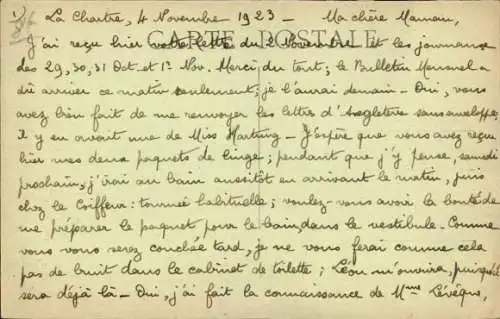 1)
La Chartre, 4 Novembre 1923 - Ma chère Maman,
CARTE POSTALE
J'ai reçu hier votre lettre du 2 Novembre et les journaux
des 29, 30, 31 Oct. et 1er Nov. Merci du tout ; le Bulletin Mensuel a
dû arriver ce matin seulement ; je l'aurai demain - Oui, vous
avez bien fait de me renvoyer les lettres d'Angleterre sans enveloppe,
il y en avait une de Miss Hartung - J'espère que vous avez reçu
hier mes deux paquets de linge ; pendant que j'y pense, samedi
prochain, j'irai au bain aussitôt en arrivant le matin, puis
chez le Coiffeur : tournée habituelle ; voulez-vous avoir la bonté de
me préparer le paquet pour le bain, dans le vestibule. Comme
vous vous serez couchée tard, je ne vous ferai comme cela
pas de bruit dans le cabinet de toilette ; Léon m'ouvrira, puisqu'il
sera déjà là - Oui, j'ai fait la connaissance de Mme Lévêque,